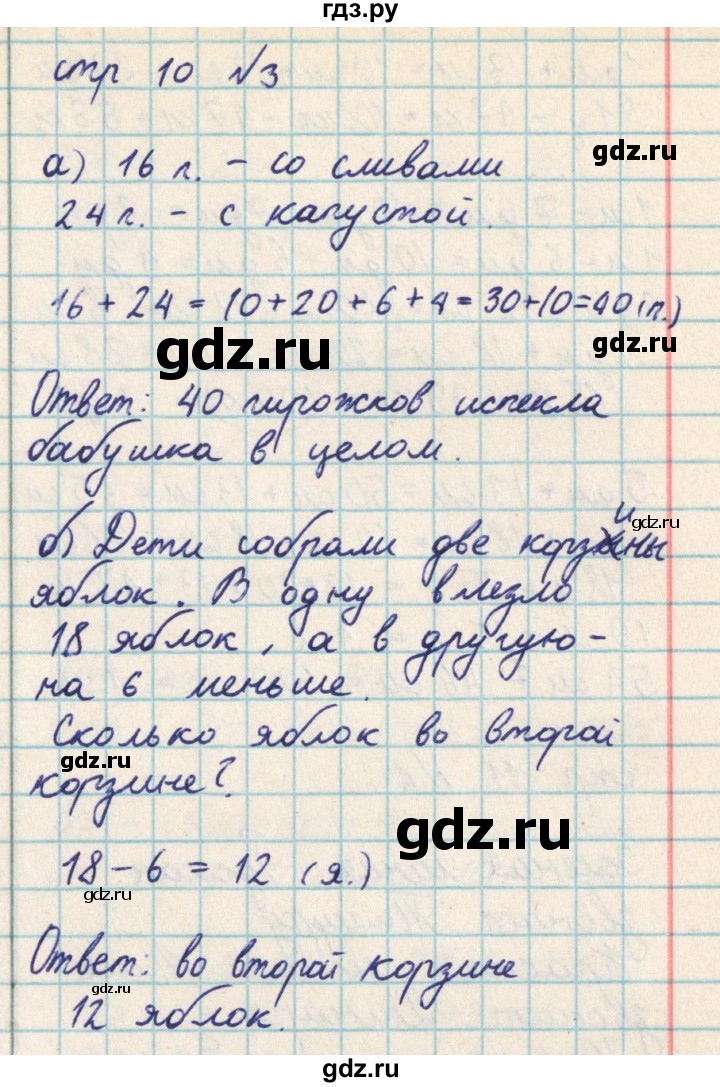 гдз.ру
стр 10 №3
gdz.ru
а) 16 п. – со сливами
24 п. – с капустой.
16 + 24 = 10 + 20 + 6 + 4 = 30 + 10 = 40 (п.)
gdz.ru
gdz.ru
Ответ: 40 пирожков испекла
бабушка в целом.
б) Дети собрали две корзины
gdz.ru
яблок. В одну влезло
18 яблок, а в другую –
на 6 меньше.
Сколько яблок во второй
gdz.ru
корзине?
gdz.ru
18 – 6 = 12 (я.)
gdz.ru
Ответ: во второй корзине
gdz.ru
12 яблок.
gdz.ru